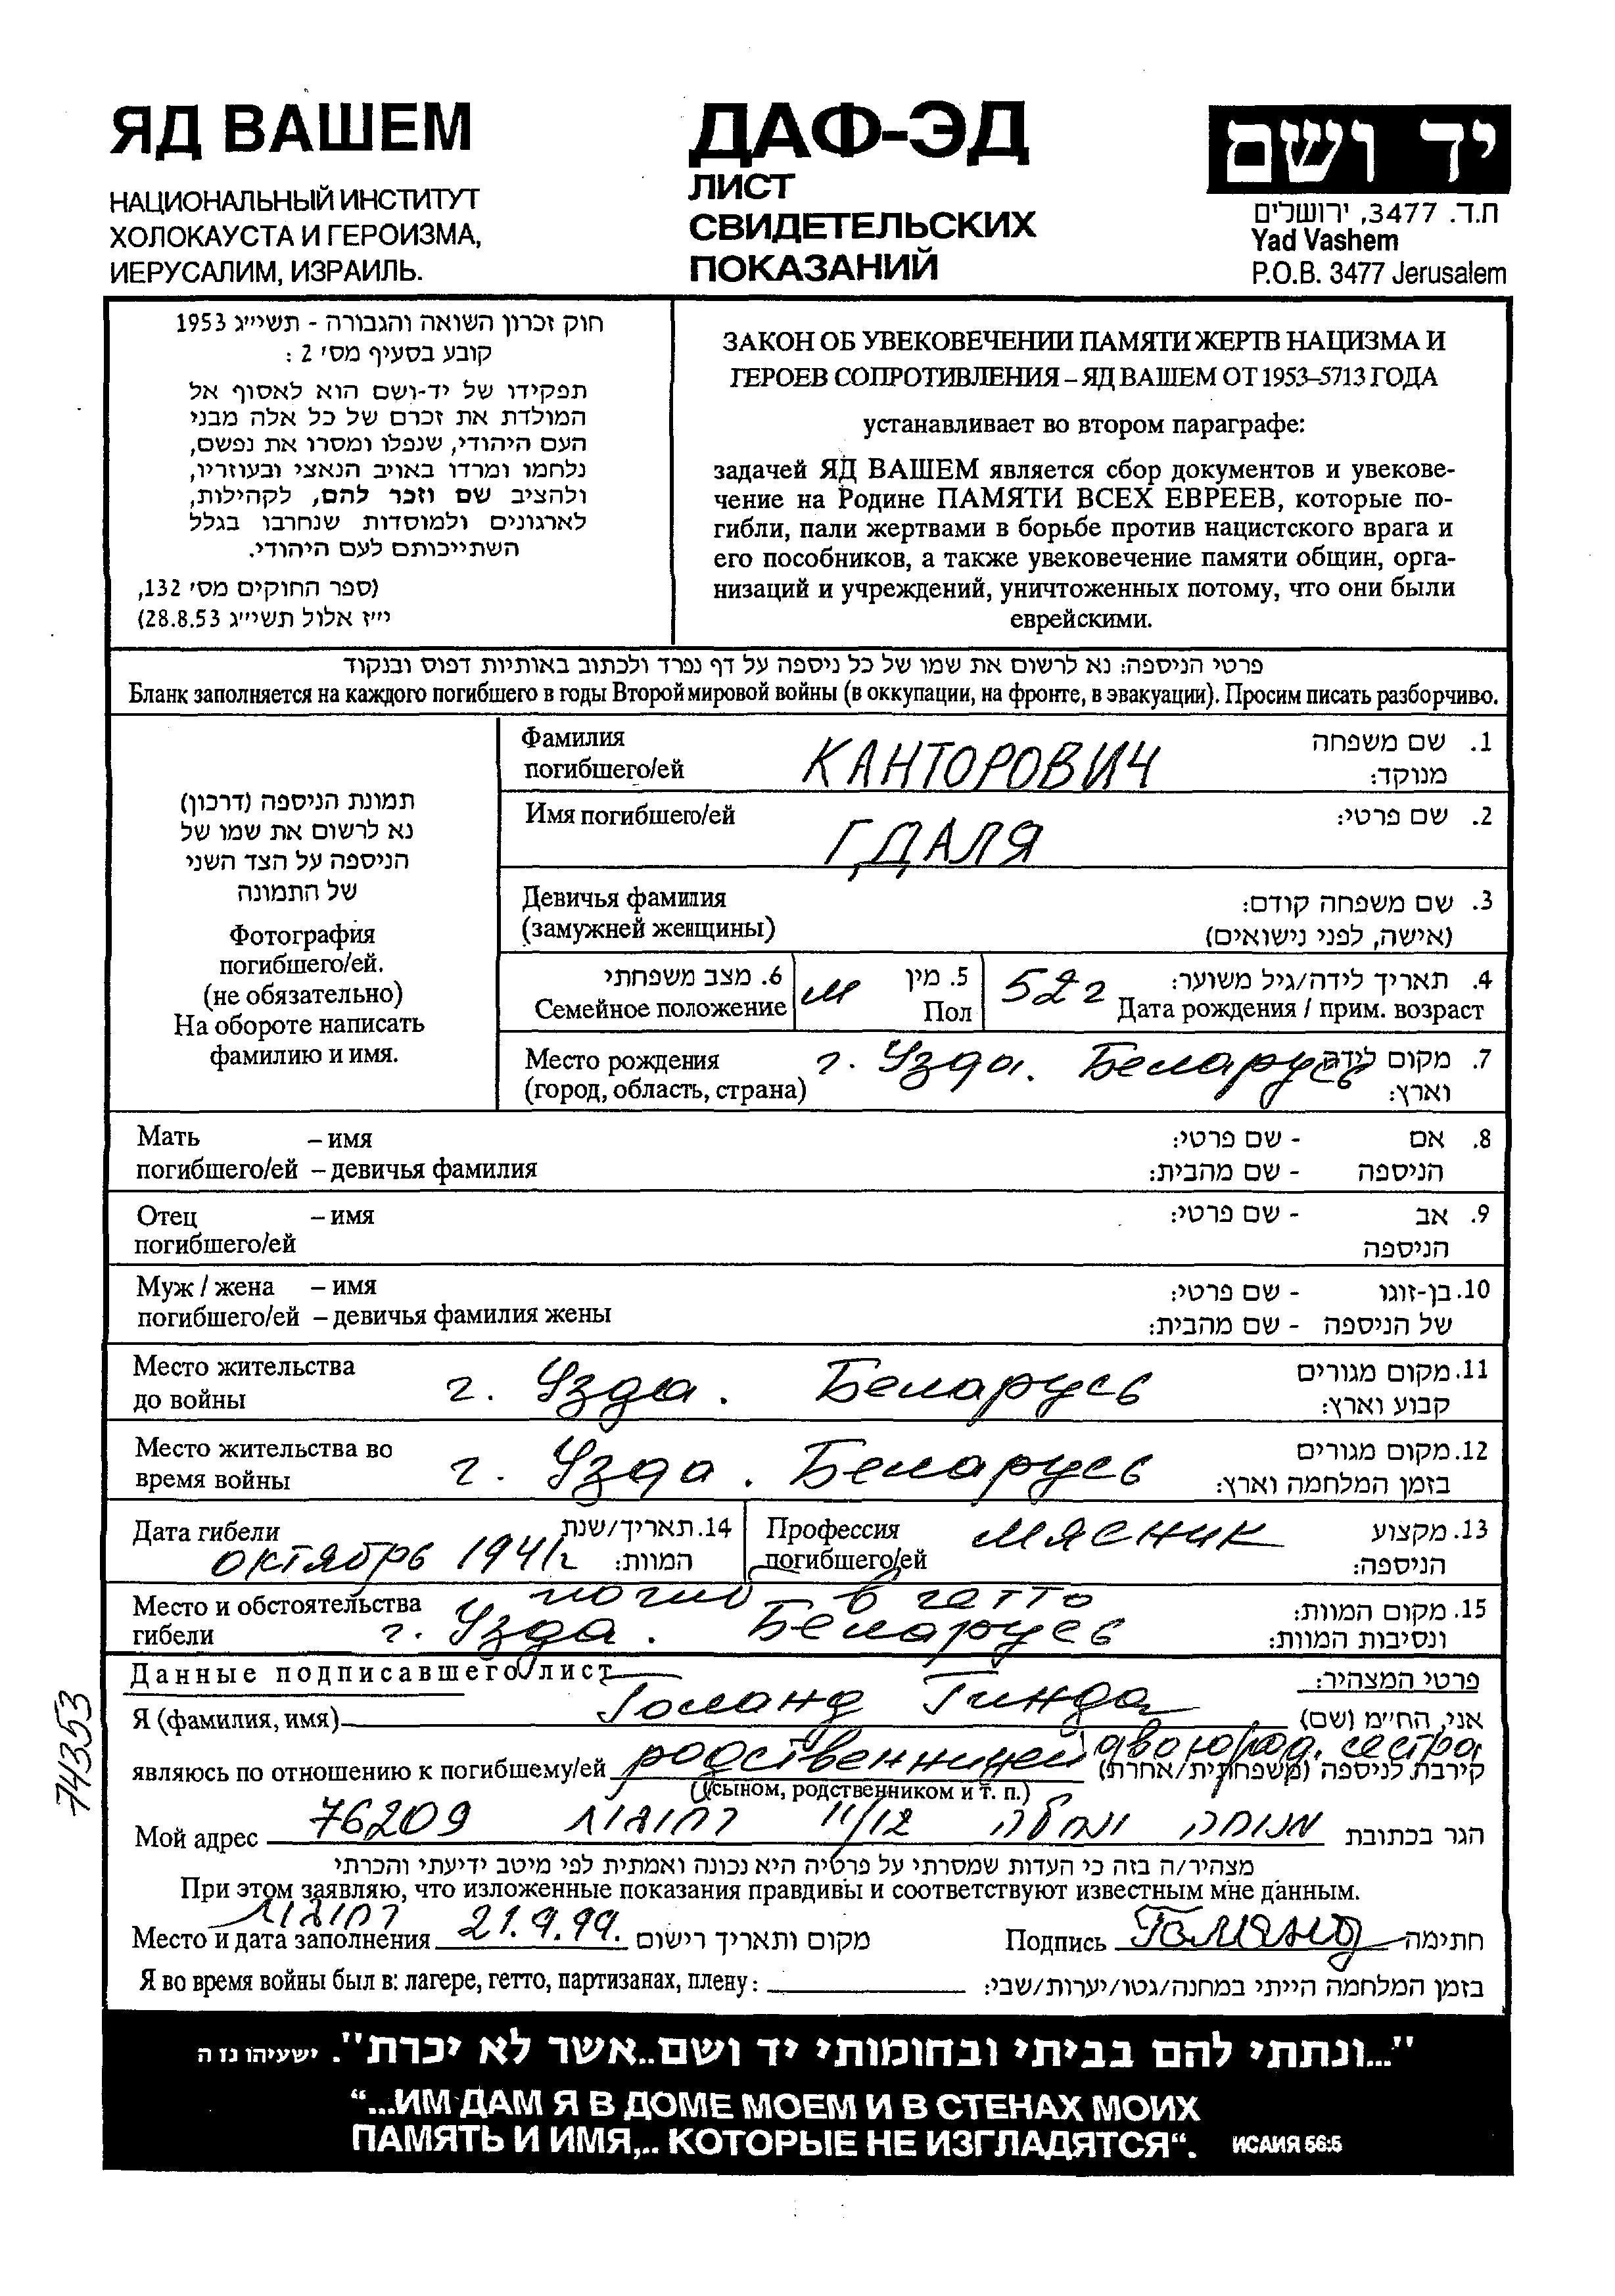 ЯД ВАШЕМ
НАЦИОНАЛЬНЫЙ ИНСТИТУТ
ХОЛОКАУСТА И ГЕРОИЗМА,
ИЕРУСАЛИМ, ИЗРАИЛЬ.
ДАФ-ЭД
ЛИСТ
СВИДЕТЕЛЬСКИХ
ПОКАЗАНИЙ
יד ושם
ת.ד. 3477, ירושלים
Yad Vashem
P.O.B. 3477 Jerusalem
חוק זכרון השואה והגבורה - תשי״ג 1953
קובע בסעיף מס׳ 2 :
תפקידו של יד-ושם הוא לאסוף אל
המולדת את זכרם של כל אלה מבני
העם היהודי, שנפלו ומסרו את נפשם,
נלחמו ומרדו באויב הנאצי ובעוזריו,
ולהציב שם וזכר להם, לקהילות,
לארגונים ולמוסדות שנחרבו בגלל
השתייכותם לעם היהודי.
(ספר החוקים מס׳ 132,
י״ז אלול תשי״ג 28.8.53)
ЗАКОН ОБ УВЕКОВЕЧЕНИИ ПАМЯТИ ЖЕРТВ НАЦИЗМА И
ГЕРОЕВ СОПРОТИВЛЕНИЯ – ЯД ВАШЕМ ОТ 1953–5713 ГОДА
устанавливает во втором параграфе:
задачей ЯД ВАШЕМ является сбор документов и увекове-
чение на Родине ПАМЯТИ ВСЕХ ЕВРЕЕВ, которые по-
гибли, пали жертвами в борьбе против нацистского врага и
его пособников, а также увековечение памяти общин, орга-
низаций и учреждений, уничтоженных потому, что они были
еврейскими.
פרטי הניספה: נא לרשום את שמו של כל ניספה על דף נפרד ולכתוב באותיות דפוס ובנקוד
Бланк заполняется на каждого погибшего в годы Второй мировой войны (в оккупации, на фронте, в эвакуации). Просим писать разборчиво.
תמונת הניספה (דרכון)
נא לרשום את שמו של
הניספה על הצד השני
של התמונה
Фотография
погибшего/ей.
(не обязательно)
На обороте написать
фамилию и имя.
Фамилия
погибшего/ей КАНТОРОВИЧ
1. שם משפחה
מנוקד:
Имя погибшего/ей ГДАЛЯ 2. שם פרטי:
Девичья фамилия
(замужней женщины)
3. שם משפחה קודם:
(אישה, לפני נישואים)
6. מצב משפחתי
Семейное положение
м 5. מין
Пол
52 г 4. תאריך לידה/גיל משוער:
Дата рождения / прим. возраст
Место рождения
(город, область, страна) г. Узда. Беларусь
7. מקום לידה
וארץ:
Мать – имя
погибшего/ей – девичья фамилия
8. אם - שם פרטי:
הניספה - שם מהבית:
Отец – имя
погибшего/ей
9. אב - שם פרטי:
הניספה
Муж / жена – имя
погибшего/ей – девичья фамилия жены
10. בן-זוגו - שם פרטי:
של הניספה - שם מהבית:
Место жительства
до войны г. Узда. Беларусь
11. מקום מגורים
קבוע וארץ:
Место жительства во
время войны г. Узда. Беларусь
12. מקום מגורים
בזמן המלחמה וארץ:
Дата гибели
октябрь 1941г
14. תאריך/שנת
המוות:
Профессия
погибшего/ей мясник
13. מקצוע
הניספה:
погиб в гетто
Место и обстоятельства
гибели г. Узда. Беларусь
15. מקום המוות:
ונסיבות המוות:
Данные подписавшего лист פרטי המצהיר:
Я (фамилия, имя) Голанд Гинда אני, החי״מ (שם)
двоюрод. сестра
являюсь по отношению к погибшему/ей родственницей קירבת לניספה (משפחתית/אחרת)
(сыном, родственником и т. п.)
Мой адрес 76209 רחובות 11/12 מנוחה ונחלה הגר בכתובת
מצהיר/ה בזה כי העדות שמסרתי על פרטיה היא נכונה ואמתית לפי מיטב ידיעתי והכרתי
При этом заявляю, что изложенные показания правдивы и соответствуют известным мне данным.
רחובות
Место и дата заполнения 21.9.99. מקום ותאריך רישום Подпись Голанд חתימה
Я во время войны был в: лагере, гетто, партизанах, плену: בזמן המלחמה הייתי במחנה/גטו/יערות/שבי:
74353
"...ונתתי להם בביתי ובחומותי יד ושם..אשר לא יכרת". ישעיהו נז ה
“...ИМ ДАМ Я В ДОМЕ МОЕМ И В СТЕНАХ МОИХ
ПАМЯТЬ И ИМЯ,.. КОТОРЫЕ НЕ ИЗГЛАДЯТСЯ“. ИСАИЯ 56:5